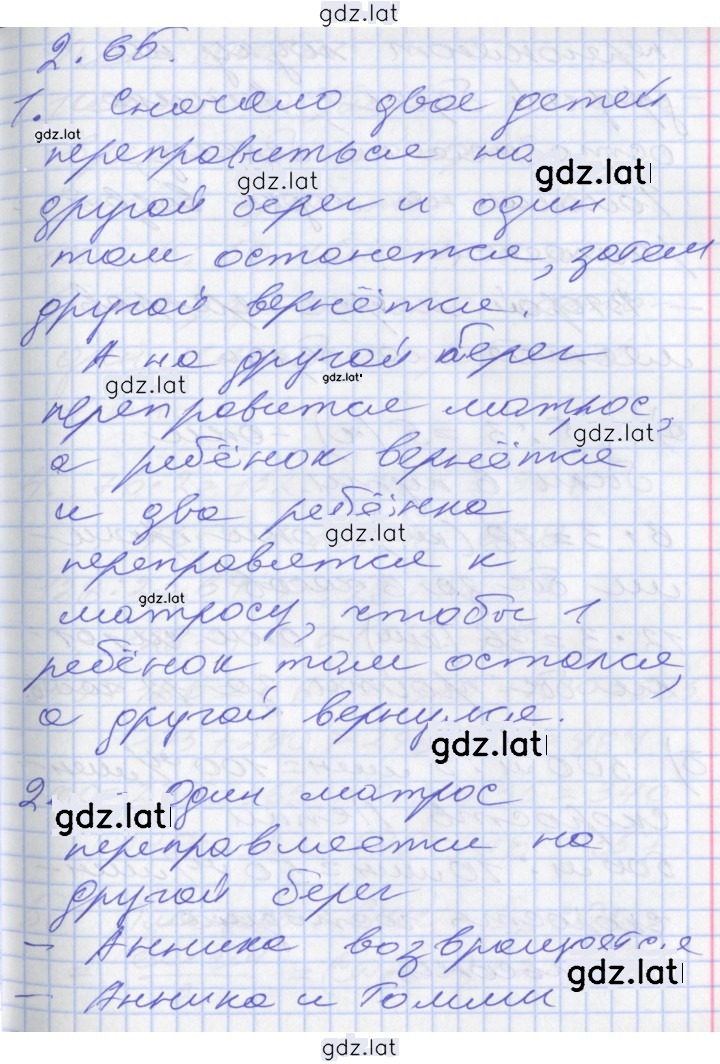 gdz.lat
2.65.
1. Сначало двое детей
gdz.lat
переправиться на
gdz.lat gdz.lat
другой берег и один
там останется, затем
другой вернётся.
А на другой берег
gdz.lat gdz.lat
переправится матрос,
gdz.lat
а ребёнок вернётся
и два ребёнка
gdz.lat
переправятся к
gdz.lat
матросу, чтобы 1
ребёнок там остался,
а другой вернулся.
gdz.lat
2. Один матрос
gdz.lat
переправляется на
другой берег
- Анника возвращается
gdz.lat
- Анника и Томми
gdz.lat